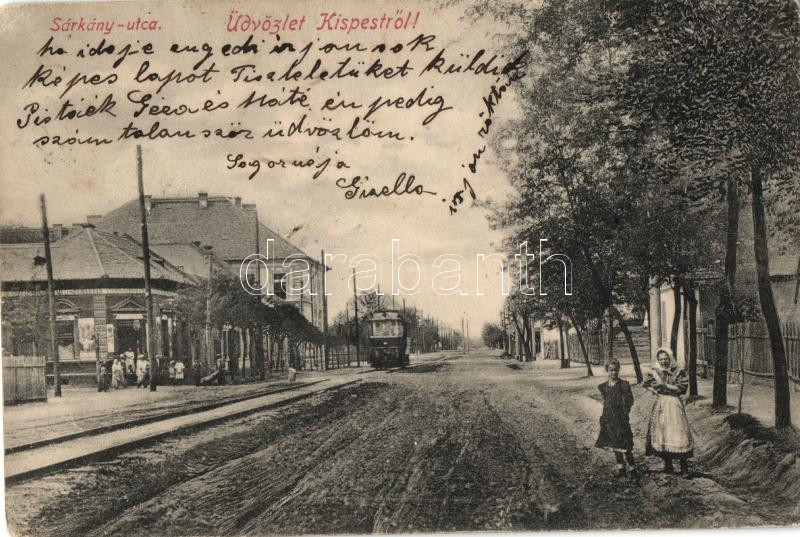 Sárkány-utca. Üdvözlet Kispestről!
ha idője engedi irjon sok
képes lapot Tiszteletüket küldik
Pistáék Géza és Máté én pedig
számtalanszor üdvözlöm.
Sogornéja
Gizella
irjon
darabanth